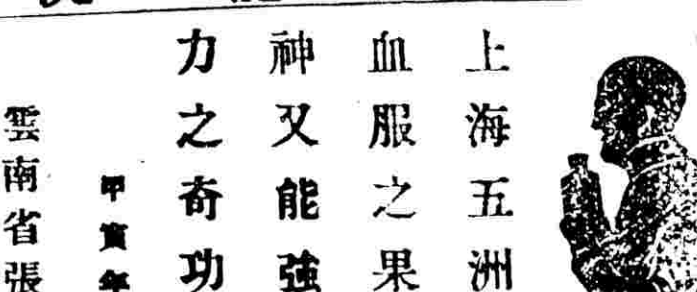 上海五洲
血服之果
神又能強
力之奇功
甲寅年
雲南省張